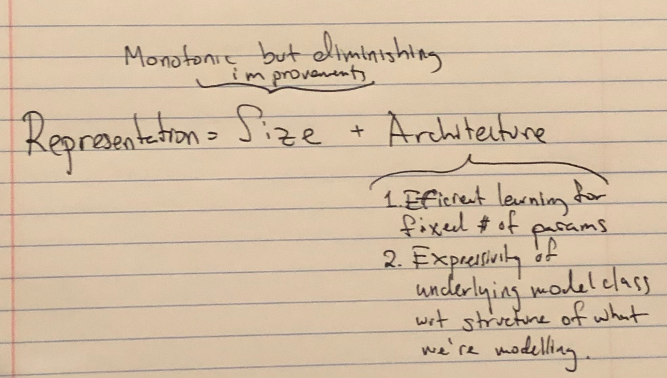 Monotonic but diminishing
improvements
Representation = Size + Architecture
1. Efficient learning for
fixed # of params
2. Expressivity of
underlying model class
wrt structure of what
we're modelling.